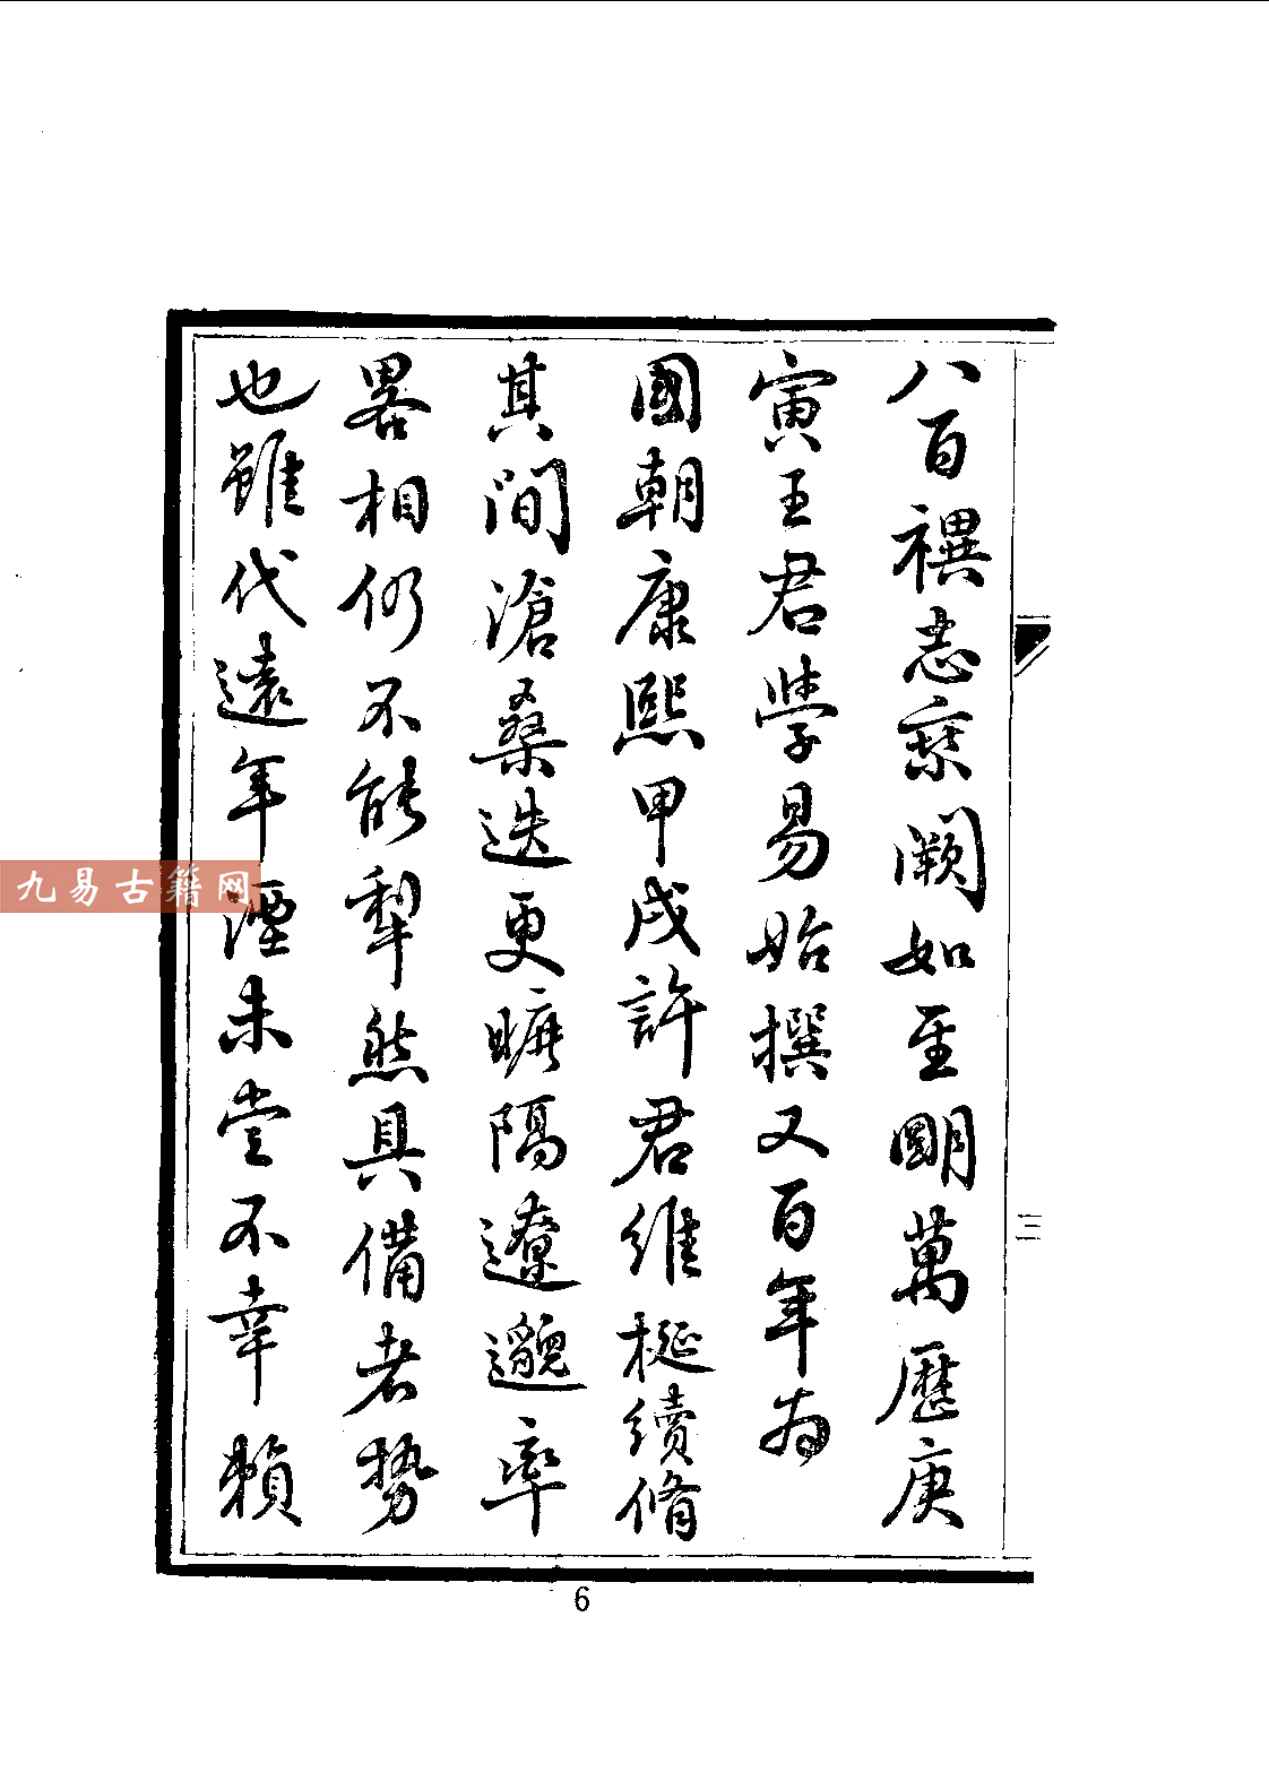 八百禩志寀闕如至明萬曆庚
寅王君學易始撰又百年為
國朝康熙甲戌許君維梴續脩
其間滄桑迭更曠隔遼邈率
畧相仍不能犁然具備者勢
也雖代遠年湮未嘗不幸賴
三
6
九易古籍网